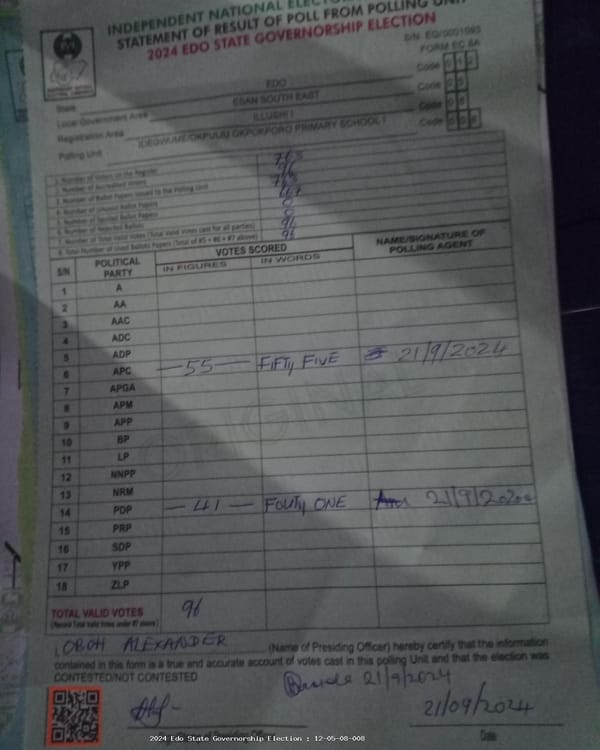 INDEPENDENT NATIONAL ELECTORAL
STATEMENT OF RESULT OF POLL FROM POLLING UNIT
2024 EDO STATE GOVERNORSHIP ELECTION
FORM EC 8A
State EDO Code 012
Local Government Area ESAN SOUTH EAST Code
Registration Area ILLUSHI I Code
Polling Unit PRIMARY SCHOOL I Code
1. Number of Voters on the Register
2. Number of Accredited Voters 96
3. Number of Ballot Papers Issued to the Polling Unit
4. Number of Unused Ballot Papers
5. Number of Spoiled Ballot Papers 0
6. Number of Rejected Ballots 0
7. Number of Total Valid Votes (Total Valid Votes cast for all parties) 96
8. Total Number of Used Ballot Papers (Total of #5 + #6 + #7 above) 96
S/N POLITICAL PARTY VOTES SCORED NAME/SIGNATURE OF POLLING AGENT
IN FIGURES IN WORDS
1 A
2 AA
3 AAC
4 ADC
5 ADP
6 APC 55 FIFTY FIVE 21/9/2024
7 APGA
8 APM
9 APP
10 BP
11 LP
12 NNPP
13 NRM
14 PDP 41 FOUTY ONE 21/9/2024
15 PRP
16 SDP
17 YPP
18 ZLP
TOTAL VALID VOTES 96
(Record Total Valid Votes under #7 above)
IOBOH ALEXANDER (Name of Presiding Officer) hereby certify that the information
contained in this form is a true and accurate account of votes cast in this polling Unit and that the election was
CONTESTED/NOT CONTESTED
21/9/2024
21/09/2024
Date
2024 Edo State Governorship Election : 12-05-08-008